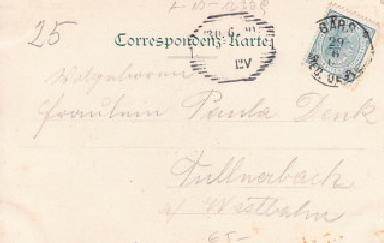 25
Correspondenz-Karte
GARS
29
Wolgeboren
Fraulein Paula Denk
Tullnerbach
a/ Westbahn
65-